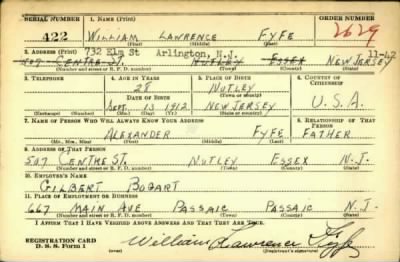 SERIAL NUMBER 1. NAME (Print) ORDER NUMBER
422 WILLIAM LAWRENCE FYFE 2629
(First) (Middle) (Last)
2. ADDRESS (Print) 732 Elm St Arlington, N.J. 11-42
507 CENTRE ST. NUTLEY ESSEX NEW JERSEY
(Number and street or R. F. D. number) (Town) (County) (State)
3. TELEPHONE 4. AGE IN YEARS 5. PLACE OF BIRTH 6. COUNTRY OF CITIZENSHIP
28 NUTLEY
DATE OF BIRTH (Town or county)
SEPT. 13 1912 NEW JERSEY U.S.A.
(Exchange) (Number) (Mo.) (Day) (Yr.) (State or country)
7. NAME OF PERSON WHO WILL ALWAYS KNOW YOUR ADDRESS 8. RELATIONSHIP OF THAT PERSON
ALEXANDER FYFE FATHER
(Mr., Mrs., Miss) (First) (Middle) (Last)
9. ADDRESS OF THAT PERSON
507 CENTRE ST. NUTLEY ESSEX N.J.
(Number and street or R. F. D. number) (Town) (County) (State)
10. EMPLOYER'S NAME
GILBERT BOGART
11. PLACE OF EMPLOYMENT OR BUSINESS
667 MAIN AVE PASSAIC PASSAIC N.J.
(Number and street or R. F. D. number) (Town) (County) (State)
I AFFIRM THAT I HAVE VERIFIED ABOVE ANSWERS AND THAT THEY ARE TRUE.
REGISTRATION CARD
D. S. S. Form 1 William Lawrence Fyfe
(Registrant's signature)